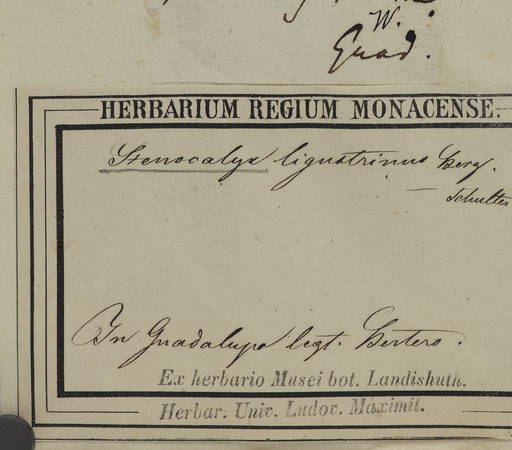 W.
Guad.
HERBARIUM REGIUM MONACENSE.
Stenocalyx ligustrinus Berg.
— Schultes
In Guadalupa legt. Bertero.
Ex herbario Musei bot. Landishuth.
Herbar. Univ. Ludov. Maximil.